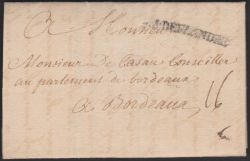 A Monsieur
Monsieur de Casau Conseiller
au parlement de bordeaux
A Bordeaux 16